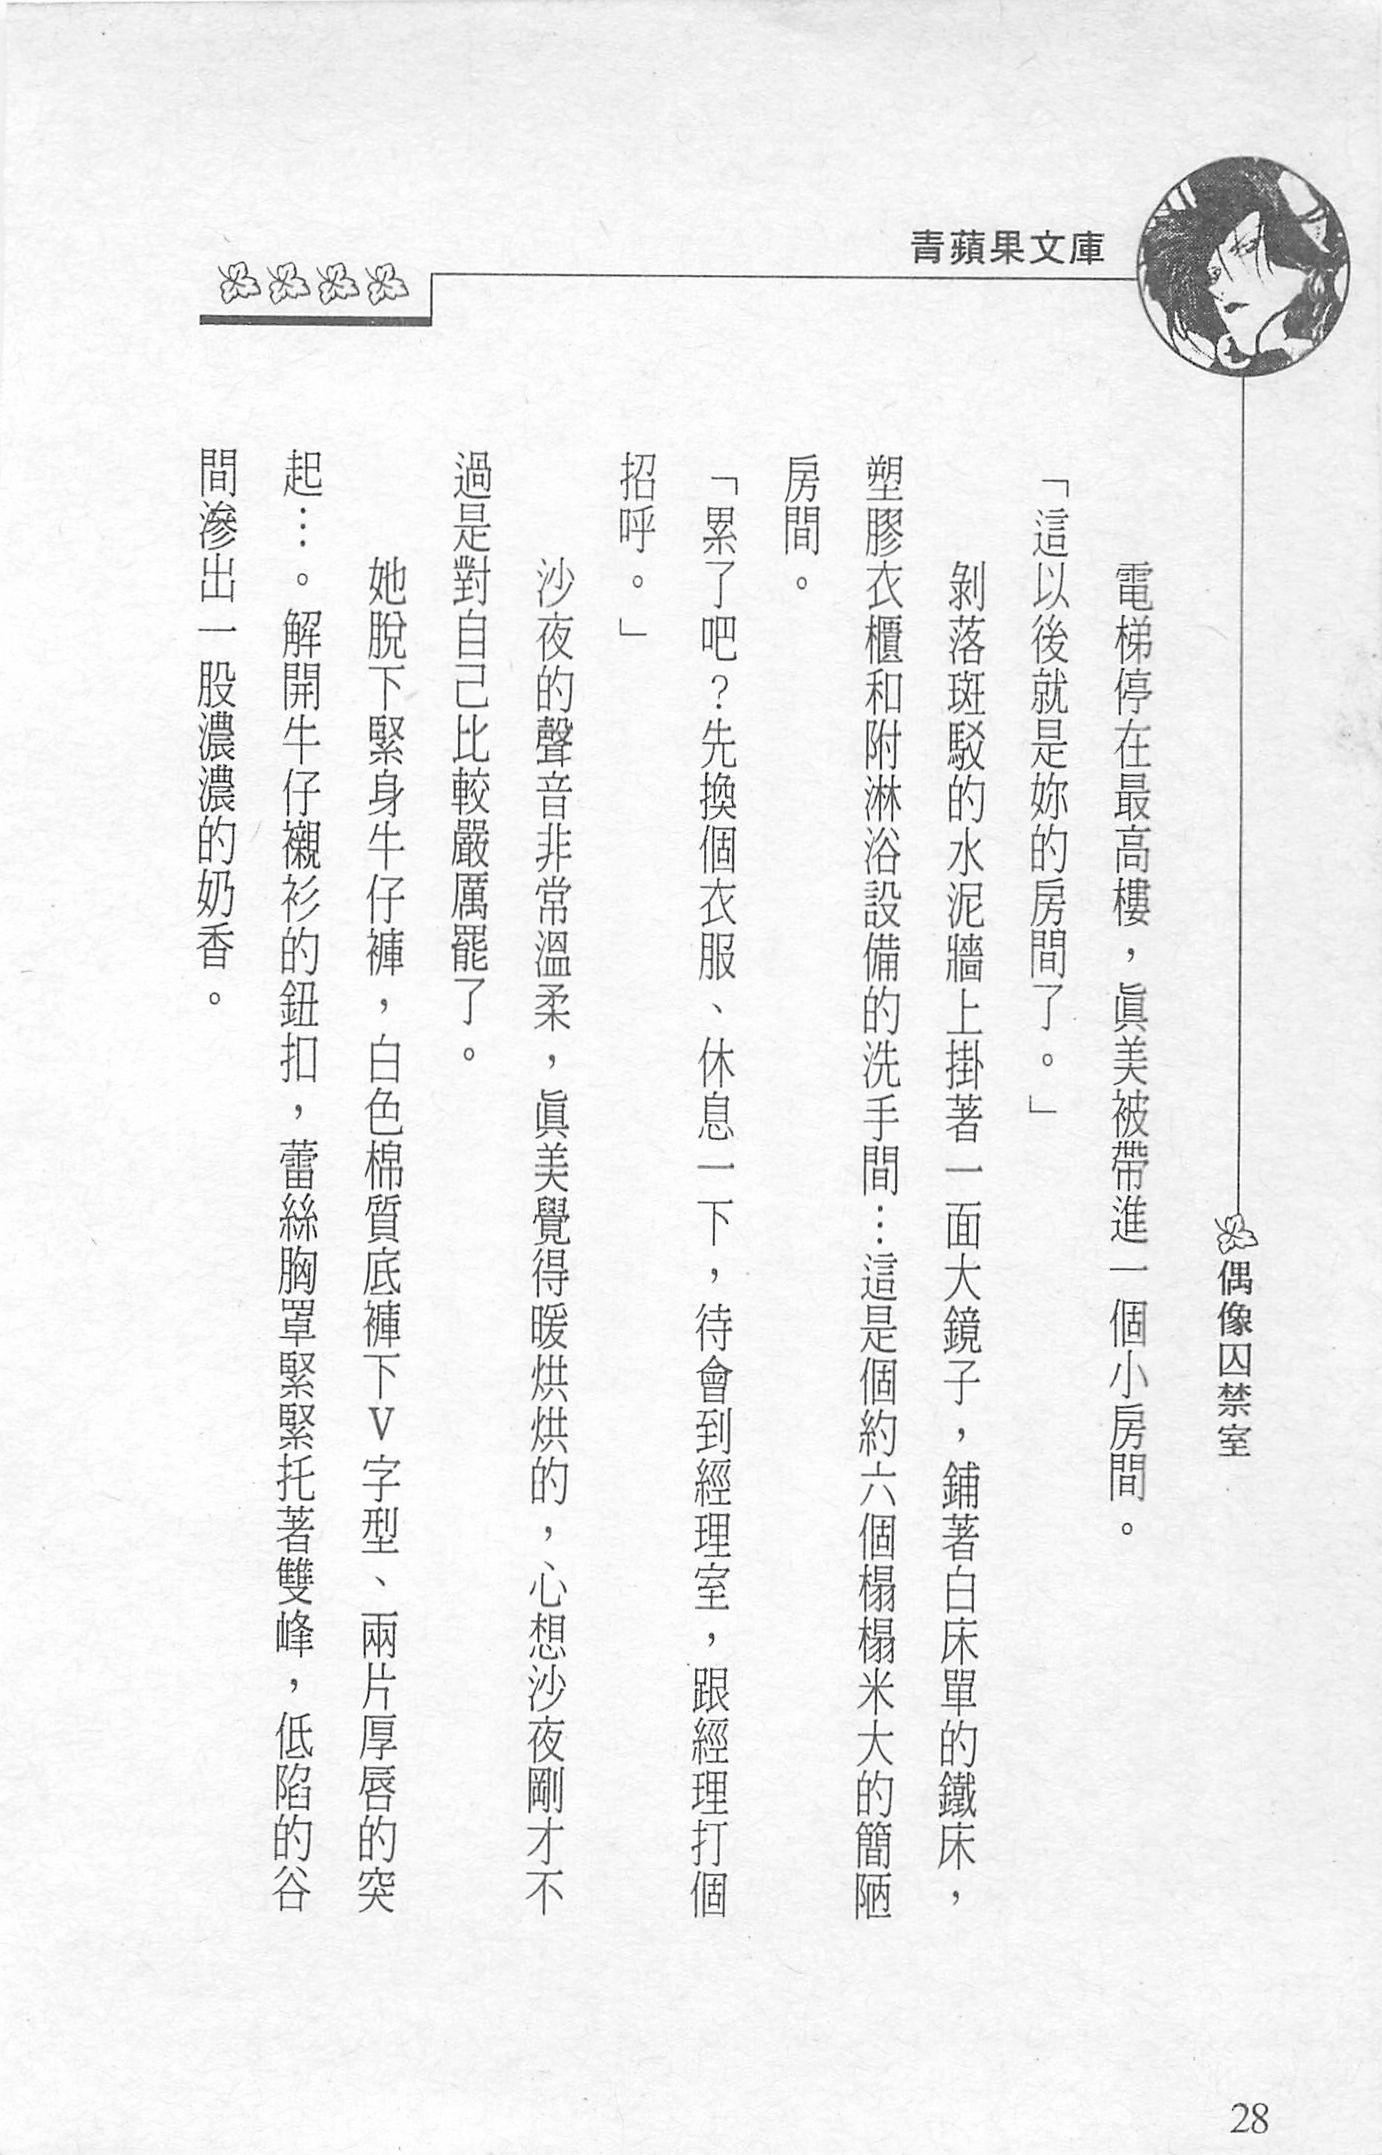 青蘋果文庫
偶像囚禁室
電梯停在最高樓，眞美被帶進一個小房間。
「這以後就是妳的房間了。」
剝落斑駁的水泥牆上掛著一面大鏡子，鋪著白床單的鐵床，
塑膠衣櫃和附淋浴設備的洗手間…這是個約六個榻榻米大的簡陋
房間。
「累了吧？先換個衣服、休息一下，待會到經理室，跟經理打個
招呼。」
沙夜的聲音非常溫柔，眞美覺得暖烘烘的，心想沙夜剛才不
過是對自己比較嚴厲罷了。
她脫下緊身牛仔褲，白色棉質底褲下V字型、兩片厚唇的突
起…。解開牛仔襯衫的鈕扣，蕾絲胸罩緊緊托著雙峰，低陷的谷
間滲出一股濃濃的奶香。
28